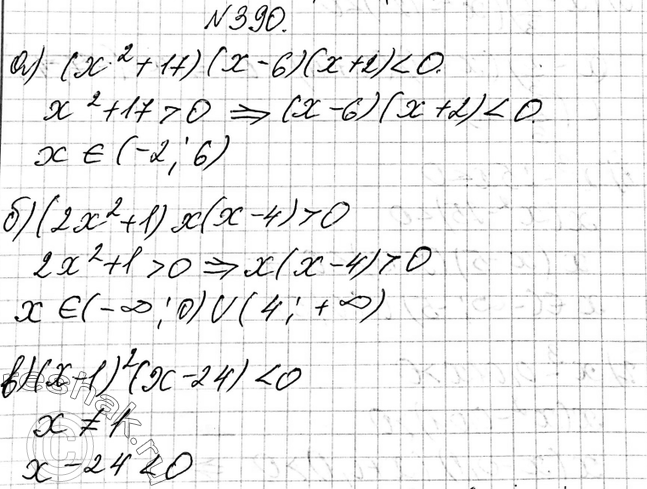 №390.
а) (x²+17)(x-6)(x+2)<0.
x²+17>0 ⇒ (x-6)(x+2)<0.
x ∈ (-2; 6)
б) (2x²+1)x(x-4)>0
2x²+1>0 ⇒ x(x-4)>0
x ∈ (-∞; 0) ∪ (4; +∞)
в) (x-1)²(x-24)<0
x ≠ 1
x-24<0